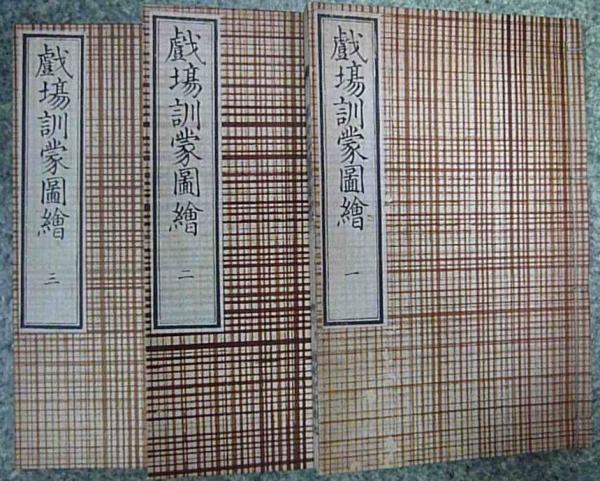 戲場訓蒙圖繪
一
戲場訓蒙圖繪
二
戲場訓蒙圖繪
三